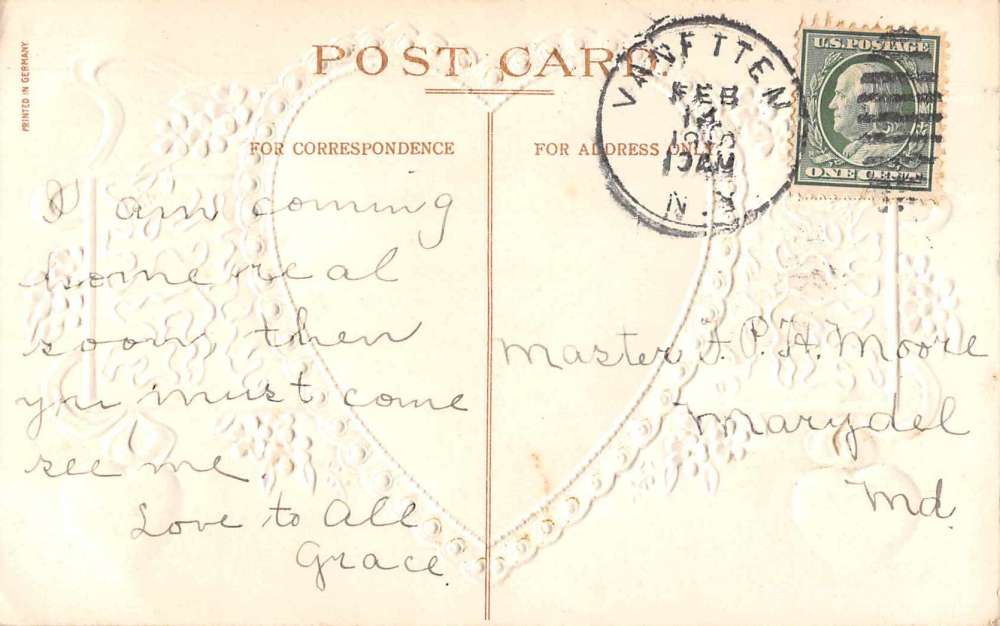 POST CARD
PRINTED IN GERMANY
FOR CORRESPONDENCE
FOR ADDRESS ONLY
VAN ETTEN
FEB
14
10 AM
N.Y.
U.S. POSTAGE
ONE CENT
I am coming
home real
soon, then
you must come
see me
Love to All
Grace.
Master F. P. H. Moore
Marydel
Md.